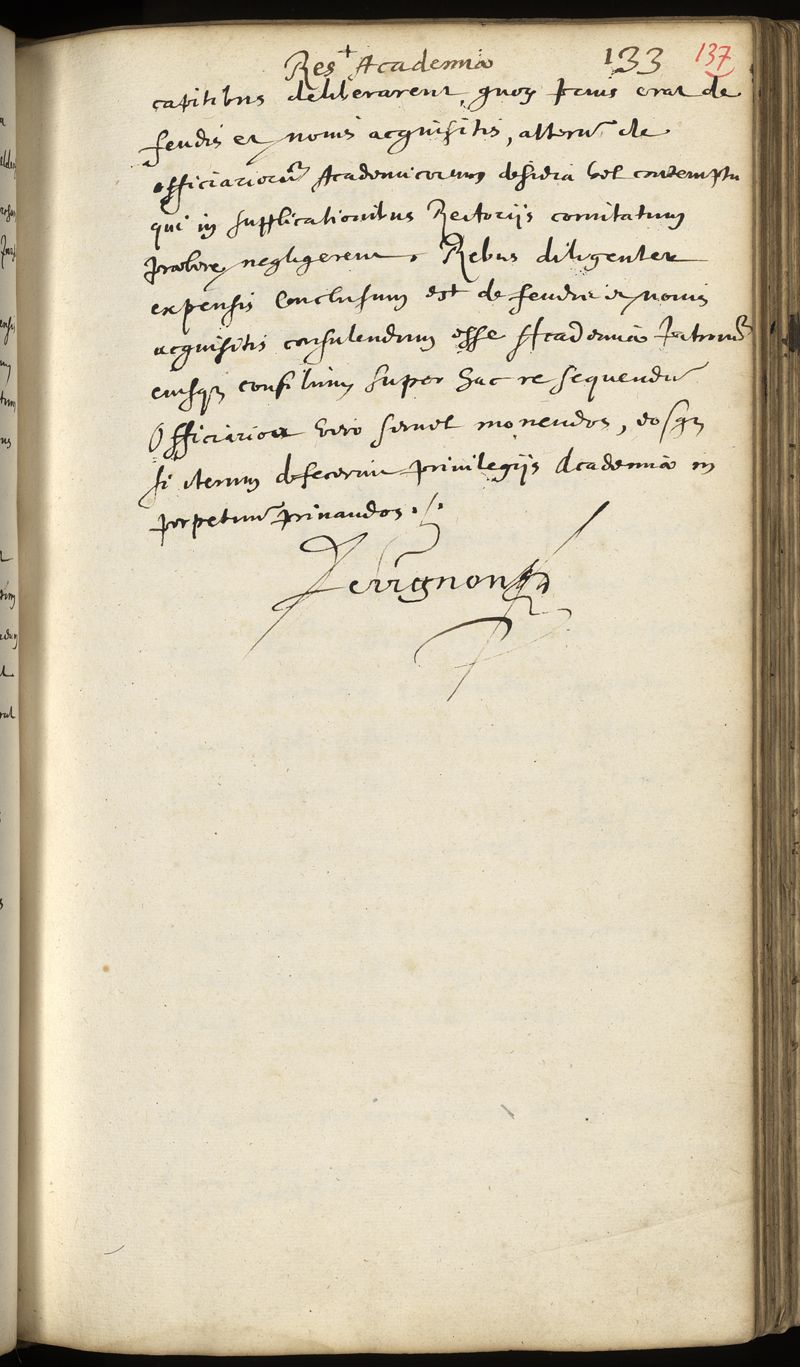 Res + Academiæ 133 137
capitibus deliberarent, quorum prius erat de
feudis et novis acquisitis, alterũ de
officiariorũ Academicorum desidia vel contemptu
qui in supplicationibus Rectoriis comitatum
præbere negligerent. Rebus diligenter
expensis Conclusum est de feudis et novis
acquisitis consulendum esse Academiæ Patronũ
eiusq; consilium super hac re sequendũ
Officiarios vero semel monendos, eosq;
si iterum defecerint privilegijs Academiæ in
perpetuũ privandos ./.